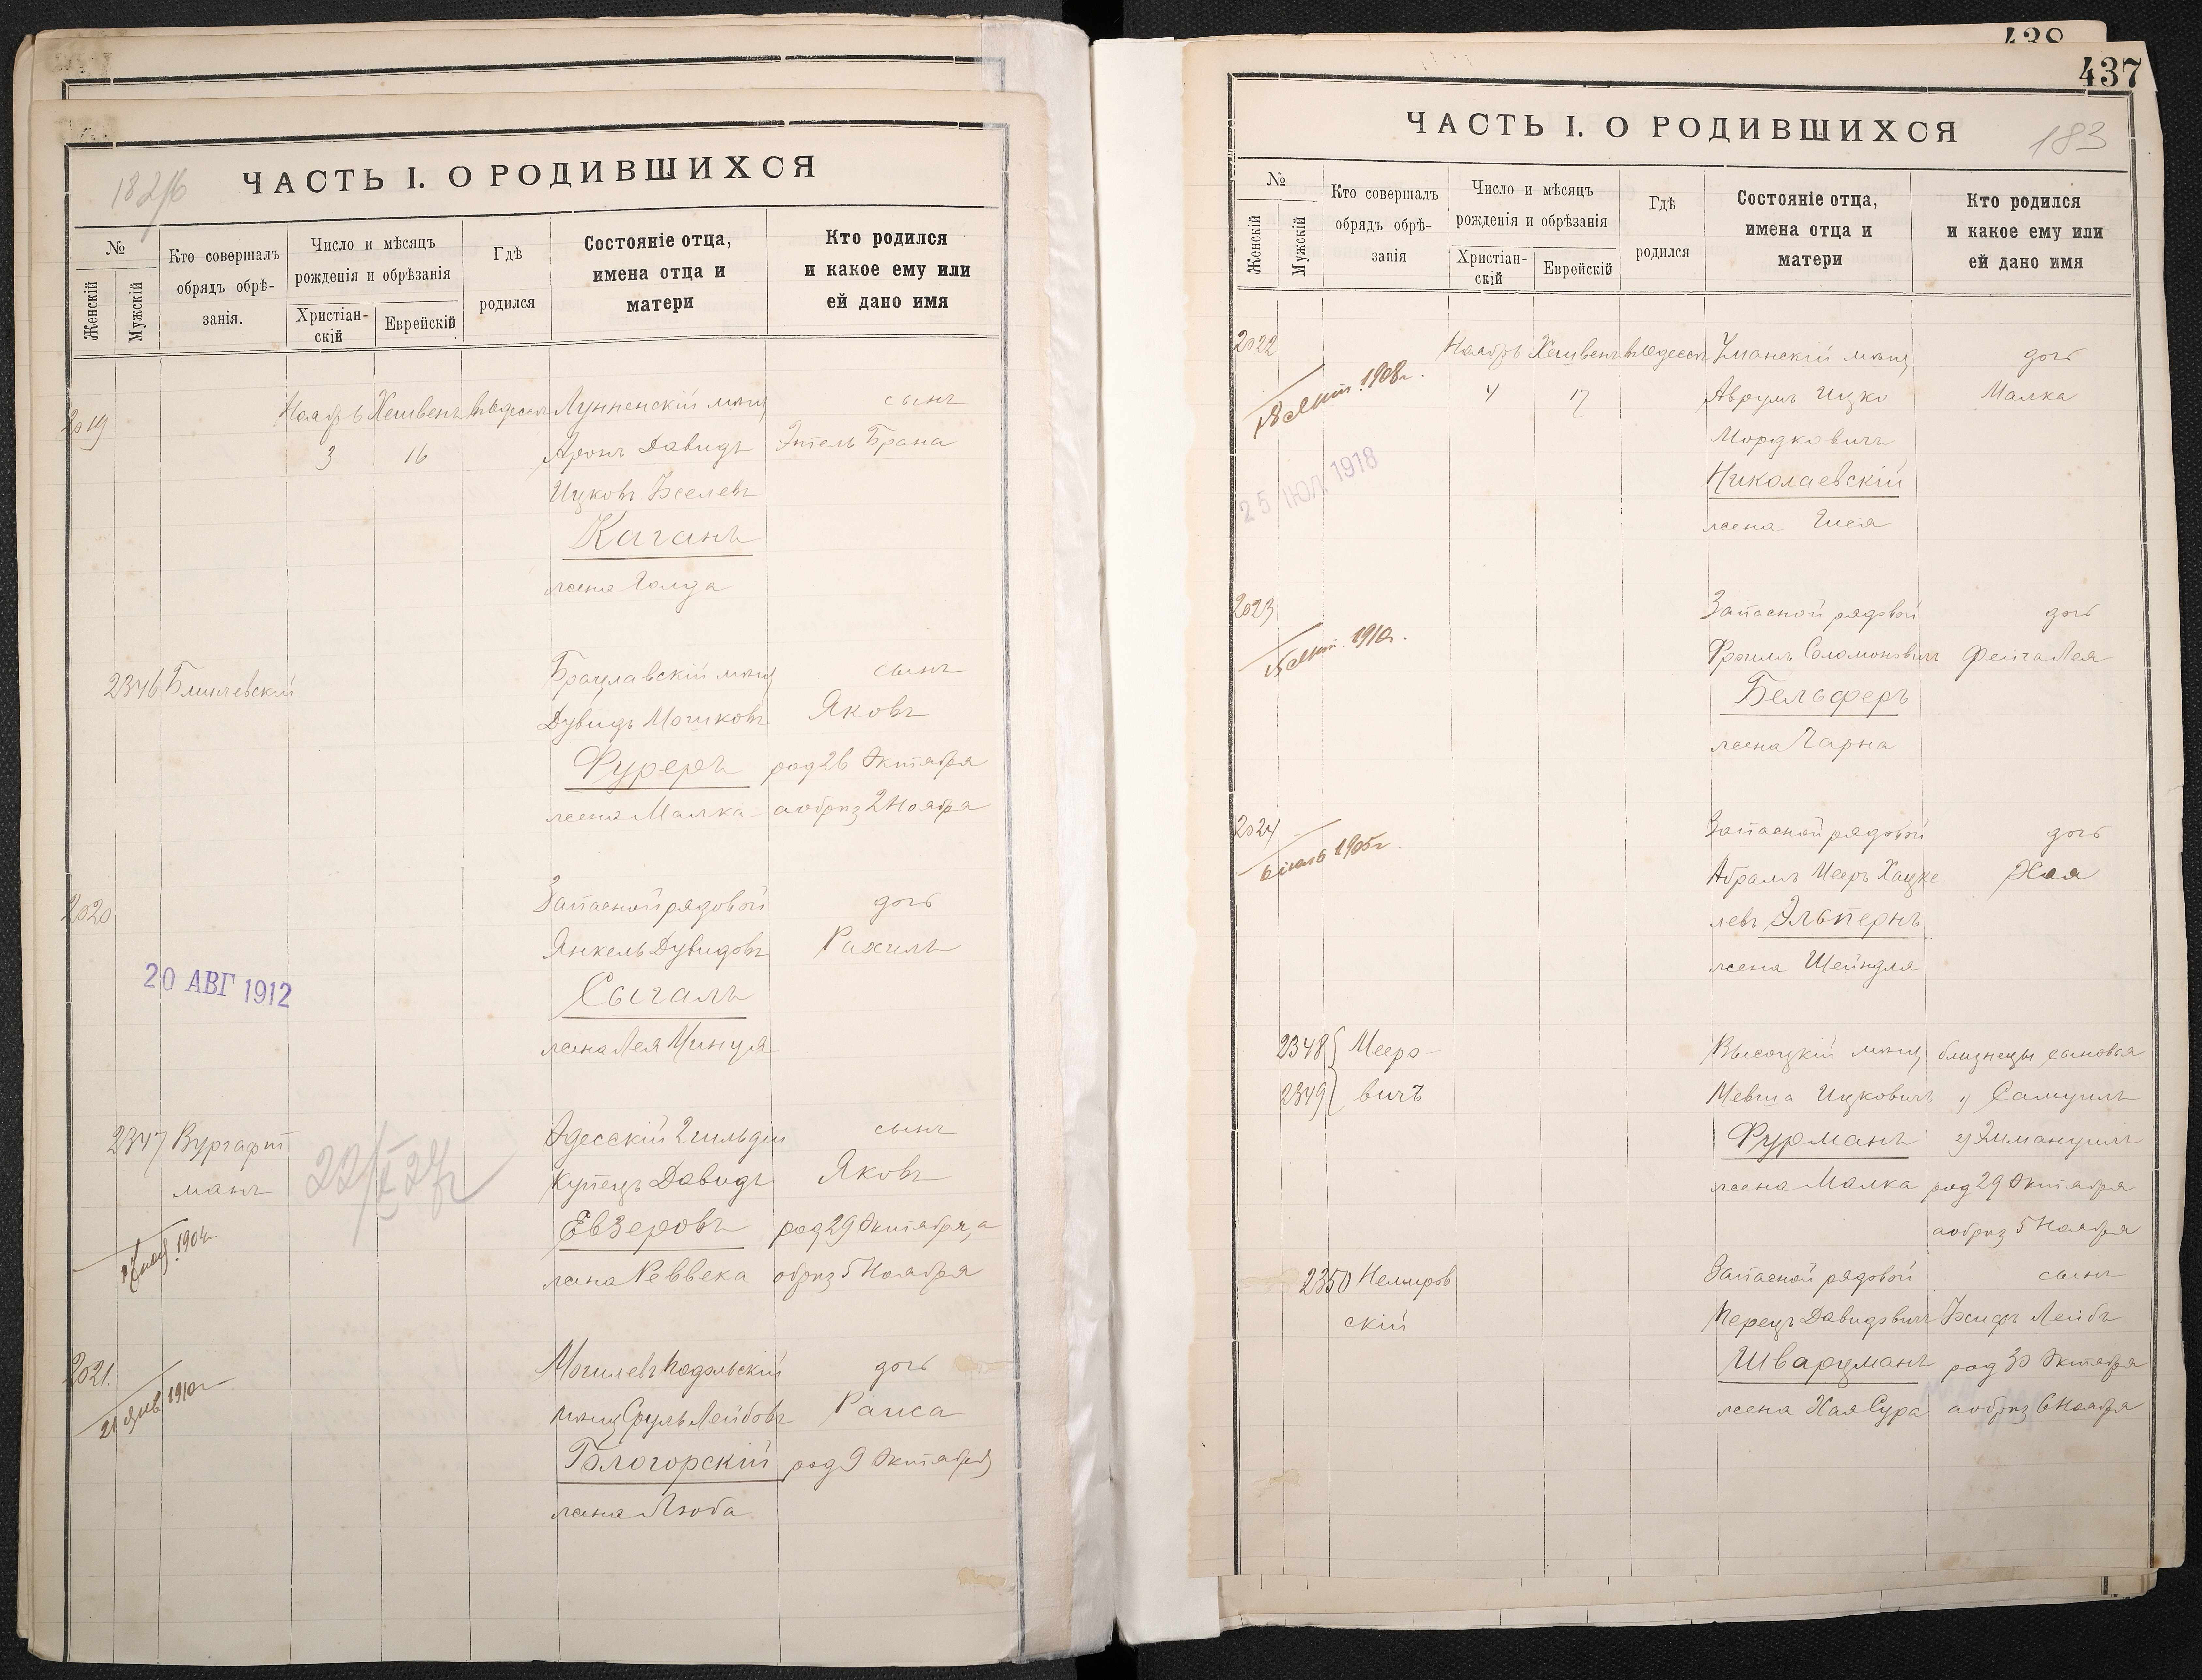 ЧАСТЬ I. О РОДИВШИХСЯ
182/б
№
Женскій
Мужскій
Кто совершалъ
обрядъ обрѣ-
занія.
Число и мѣсяцъ
рожденія и обрѣзанія
Христіан-
скій
Еврейскій
Гдѣ
родился
Состояніе отца,
имена отца и
матери
Кто родился
и какое ему или
ей дано имя
2019 Ноябрь Хешвенъ въ Одессѣ мѣщ сынъ
3 16 Аронъ Давидъ Этель Брана
Ицковъ
Каганъ
жена Голда
2346 Блинчевскій Брацлавскій мѣщ сынъ
Дувидъ Мошковъ Яковъ
Фуреръ род 26 Октября
жена Малка а обрѣз 2 Ноября
2020 Запасной рядовой дочь
Янкель Дувидовъ Рахиль
20 АВГ 1912
Сыгалъ
жена Лея Минця
2347 Вургафт Одесскій 2 гильдіи сынъ
манъ купецъ Давидъ Яковъ
Евзеровъ род 29 Октября, а
1904г.
жена Реввека обрѣз 5 Ноября
2021. Могилевъ Подольскій дочь
21 Янв. 1910г
мѣщ Сруль Лейбовъ Раиса
Бологорскій род 9 Октября
жена Люба
438
437
ЧАСТЬ I. О РОДИВШИХСЯ
183
№
Женскій
Мужскій
Кто совершалъ
обрядъ обрѣ-
занія
Число и мѣсяцъ
рожденія и обрѣзанія
Христіан-
скій
Еврейскій
Гдѣ
родился
Состояніе отца,
имена отца и
матери
Кто родился
и какое ему или
ей дано имя
2022 Ноябрь Хешвенъ въ Одессѣ Уманскій мѣщ дочь
1908г.
4 17 Аврумъ Ицко Малка
Мордковичъ
25 ІЮЛ 1918
Николаевскій
жена Гися
2023 Запасной рядовой дочь
1910г.
Фроимъ Соломоновичъ Фейга Лея
Бельферъ
жена Чарна
2024 Запасной рядовой дочь
6 іюль 1905г.
Абрамъ Мееръ Хацке Хая
левъ Эльпернъ
жена Шейндля
2348 Мееро- Высоцкій мѣщ близнецы сыновья
2349 вичъ Мевша Ицковичъ 1) Самуилъ
Фурманъ 2) Эммануилъ
жена Малка род 29 Октября
а обрѣз 5 Ноября
2350 Немиров Запасной рядовой сынъ
скій Перецъ Давидовичъ Іосифъ Лейбъ
Шварцманъ род 30 Октября
жена Хая Сура а обрѣз 6 Ноября